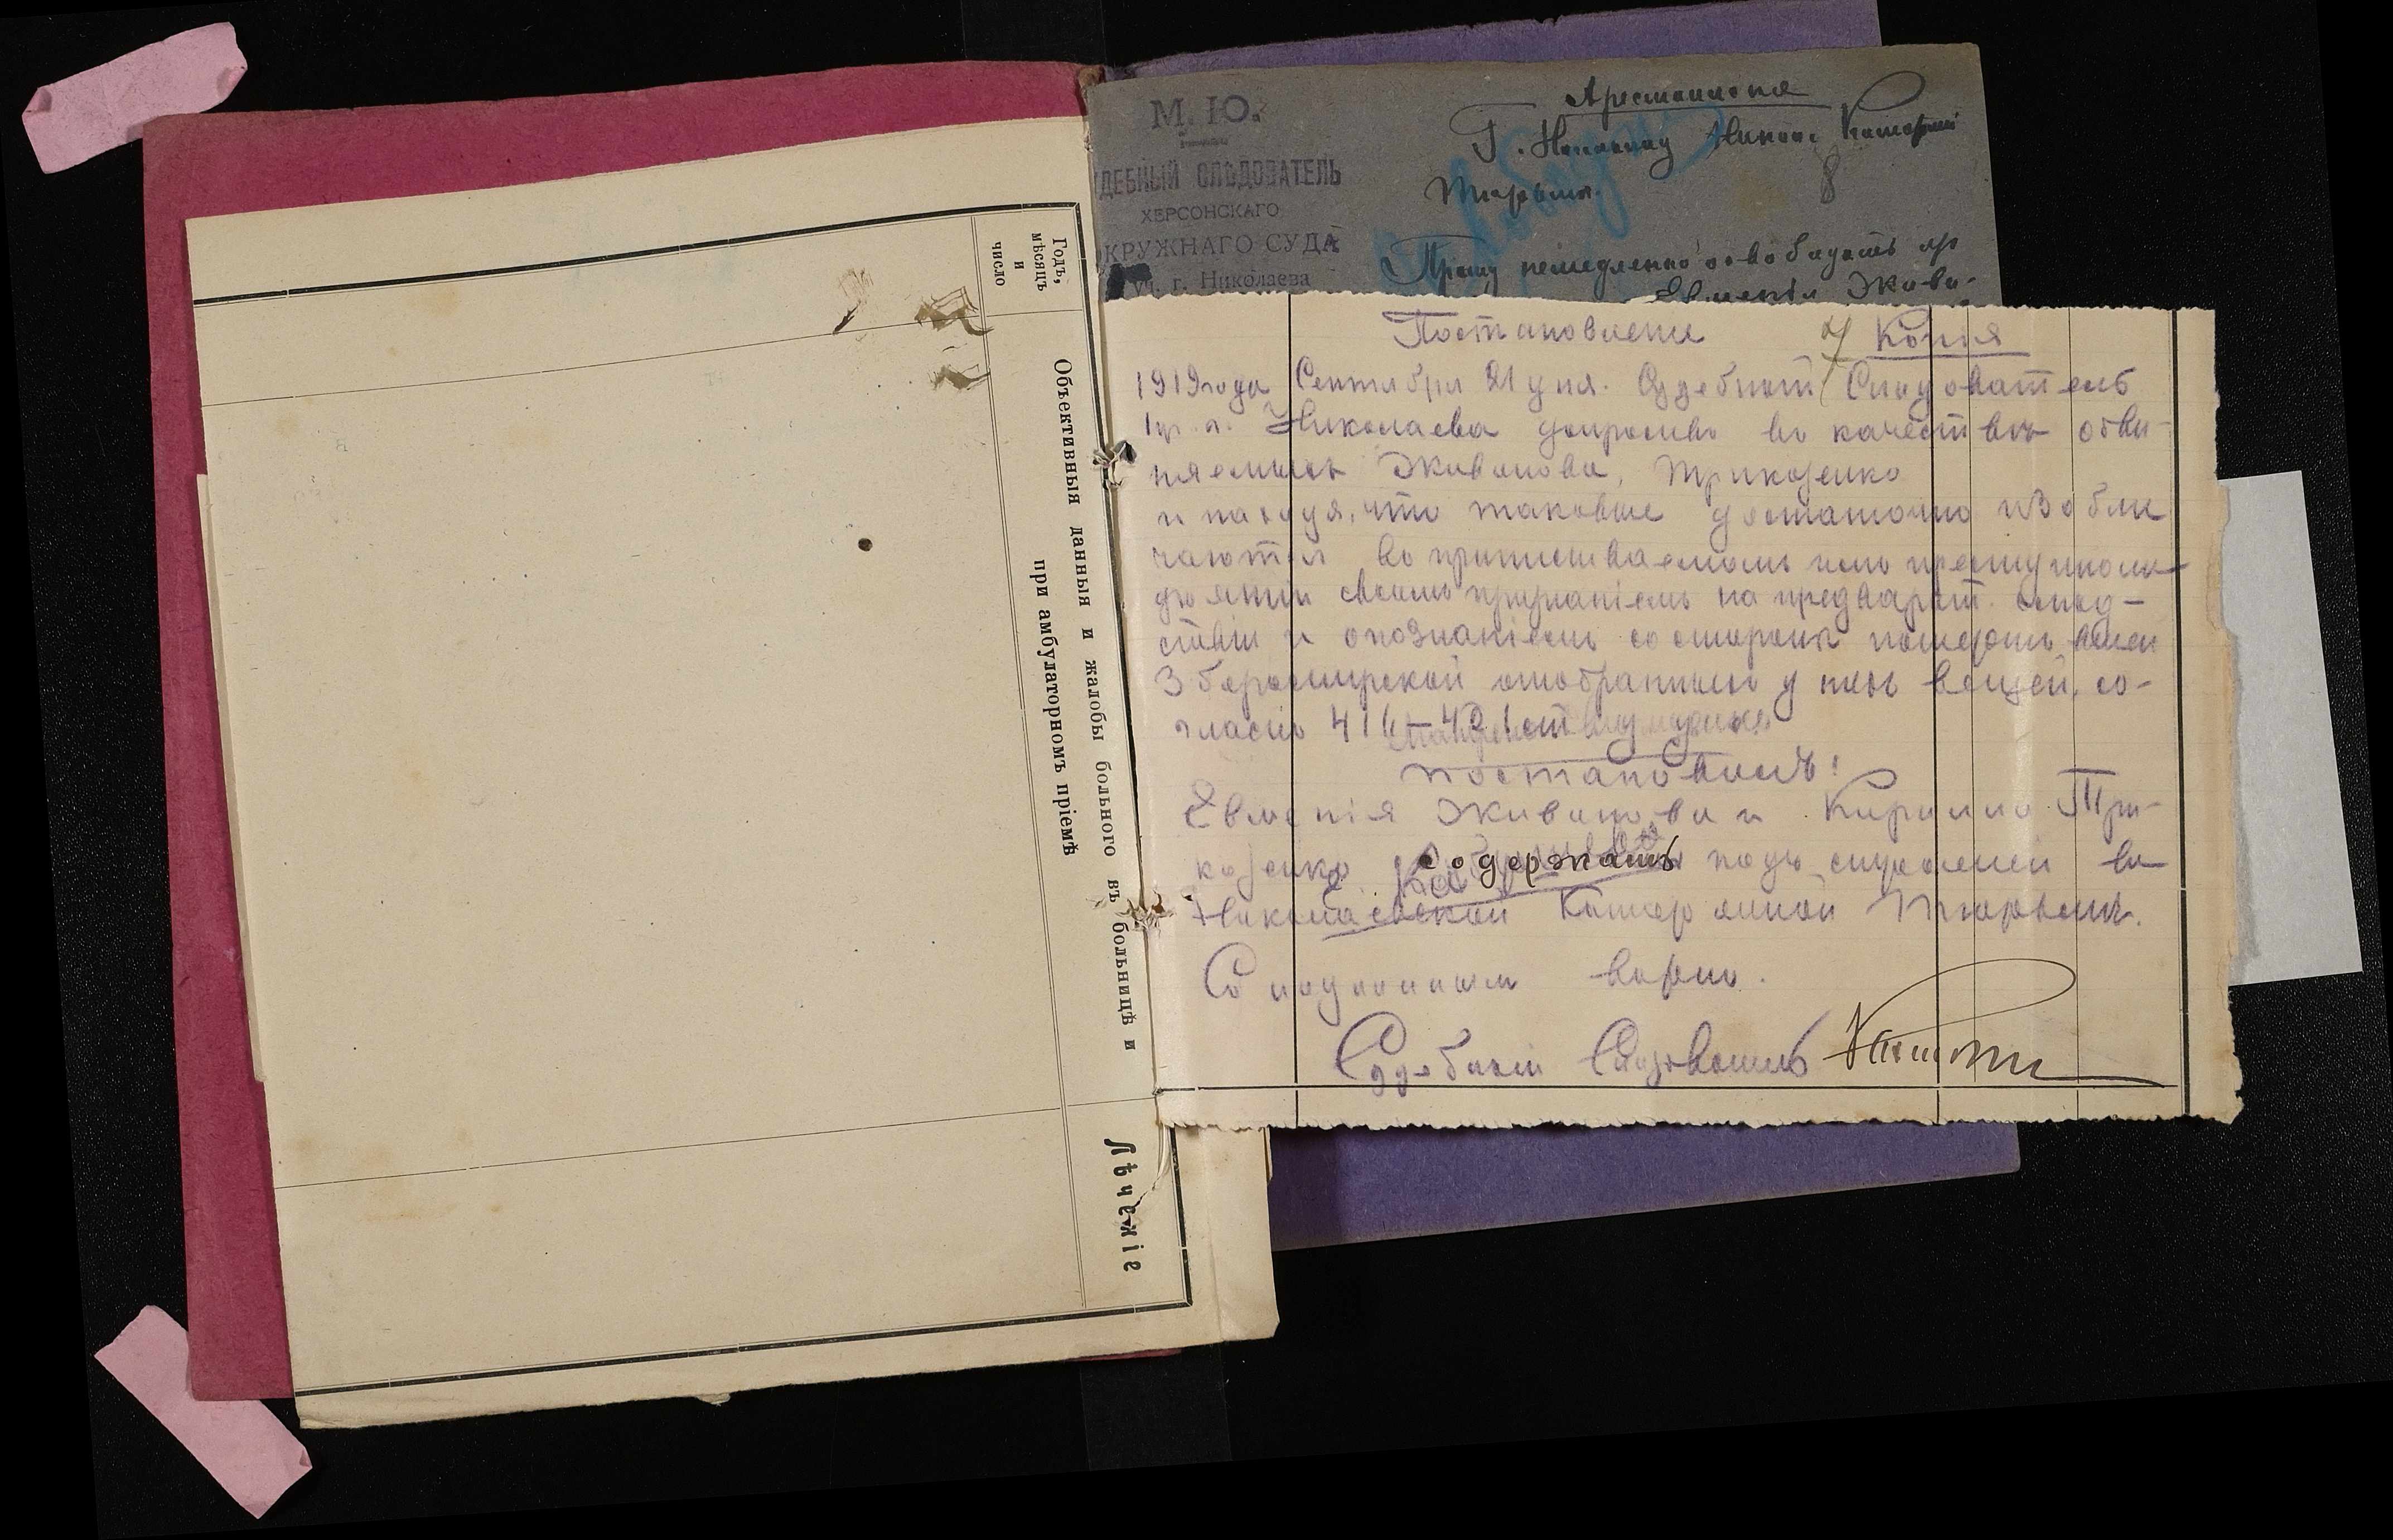 Годъ,
мѣсяцъ
и
число
Объективныя данныя и жалобы больного въ больницѣ и
при амбулаторномъ пріемѣ
Лѣченіе
М. Ю.
ДЕБНЫЙ СЛѢДОВАТЕЛЬ
ХЕРСОНСКАГО
ОКРУЖНАГО СУДА
уч. г. Николаева
Арестантское
Г. Начальнику Никол. Каторжной
Тюрьмы.
8
Прошу немедленно освободить
Евменія Живо-
Постановленіе 7 Копія
1919 года Сентября 21 дня. Судебный Слѣдователь
1 уч. г. Николаева допросивъ въ качествѣ обви-
няемыхъ Живанова, Трикозенко
и находя, что таковые достаточно изобли
чаются въ приписываемомъ имъ преступномъ
дѣяніи своимъ признаніемъ на предварит. слѣд-
ствіи и опознаніемъ со стороны потерпѣвшей
Збороширской отобранныхъ у нихъ вещей, со-
гласно 416-421 ст.
постановилъ:
Евменія Живанова и Кирилла Три-
козенко содержать подъ стражей въ
Николаевской Каторжной Тюрьмѣ.
Съ подлиннымъ вѣрно.
Судебный Слѣдователь